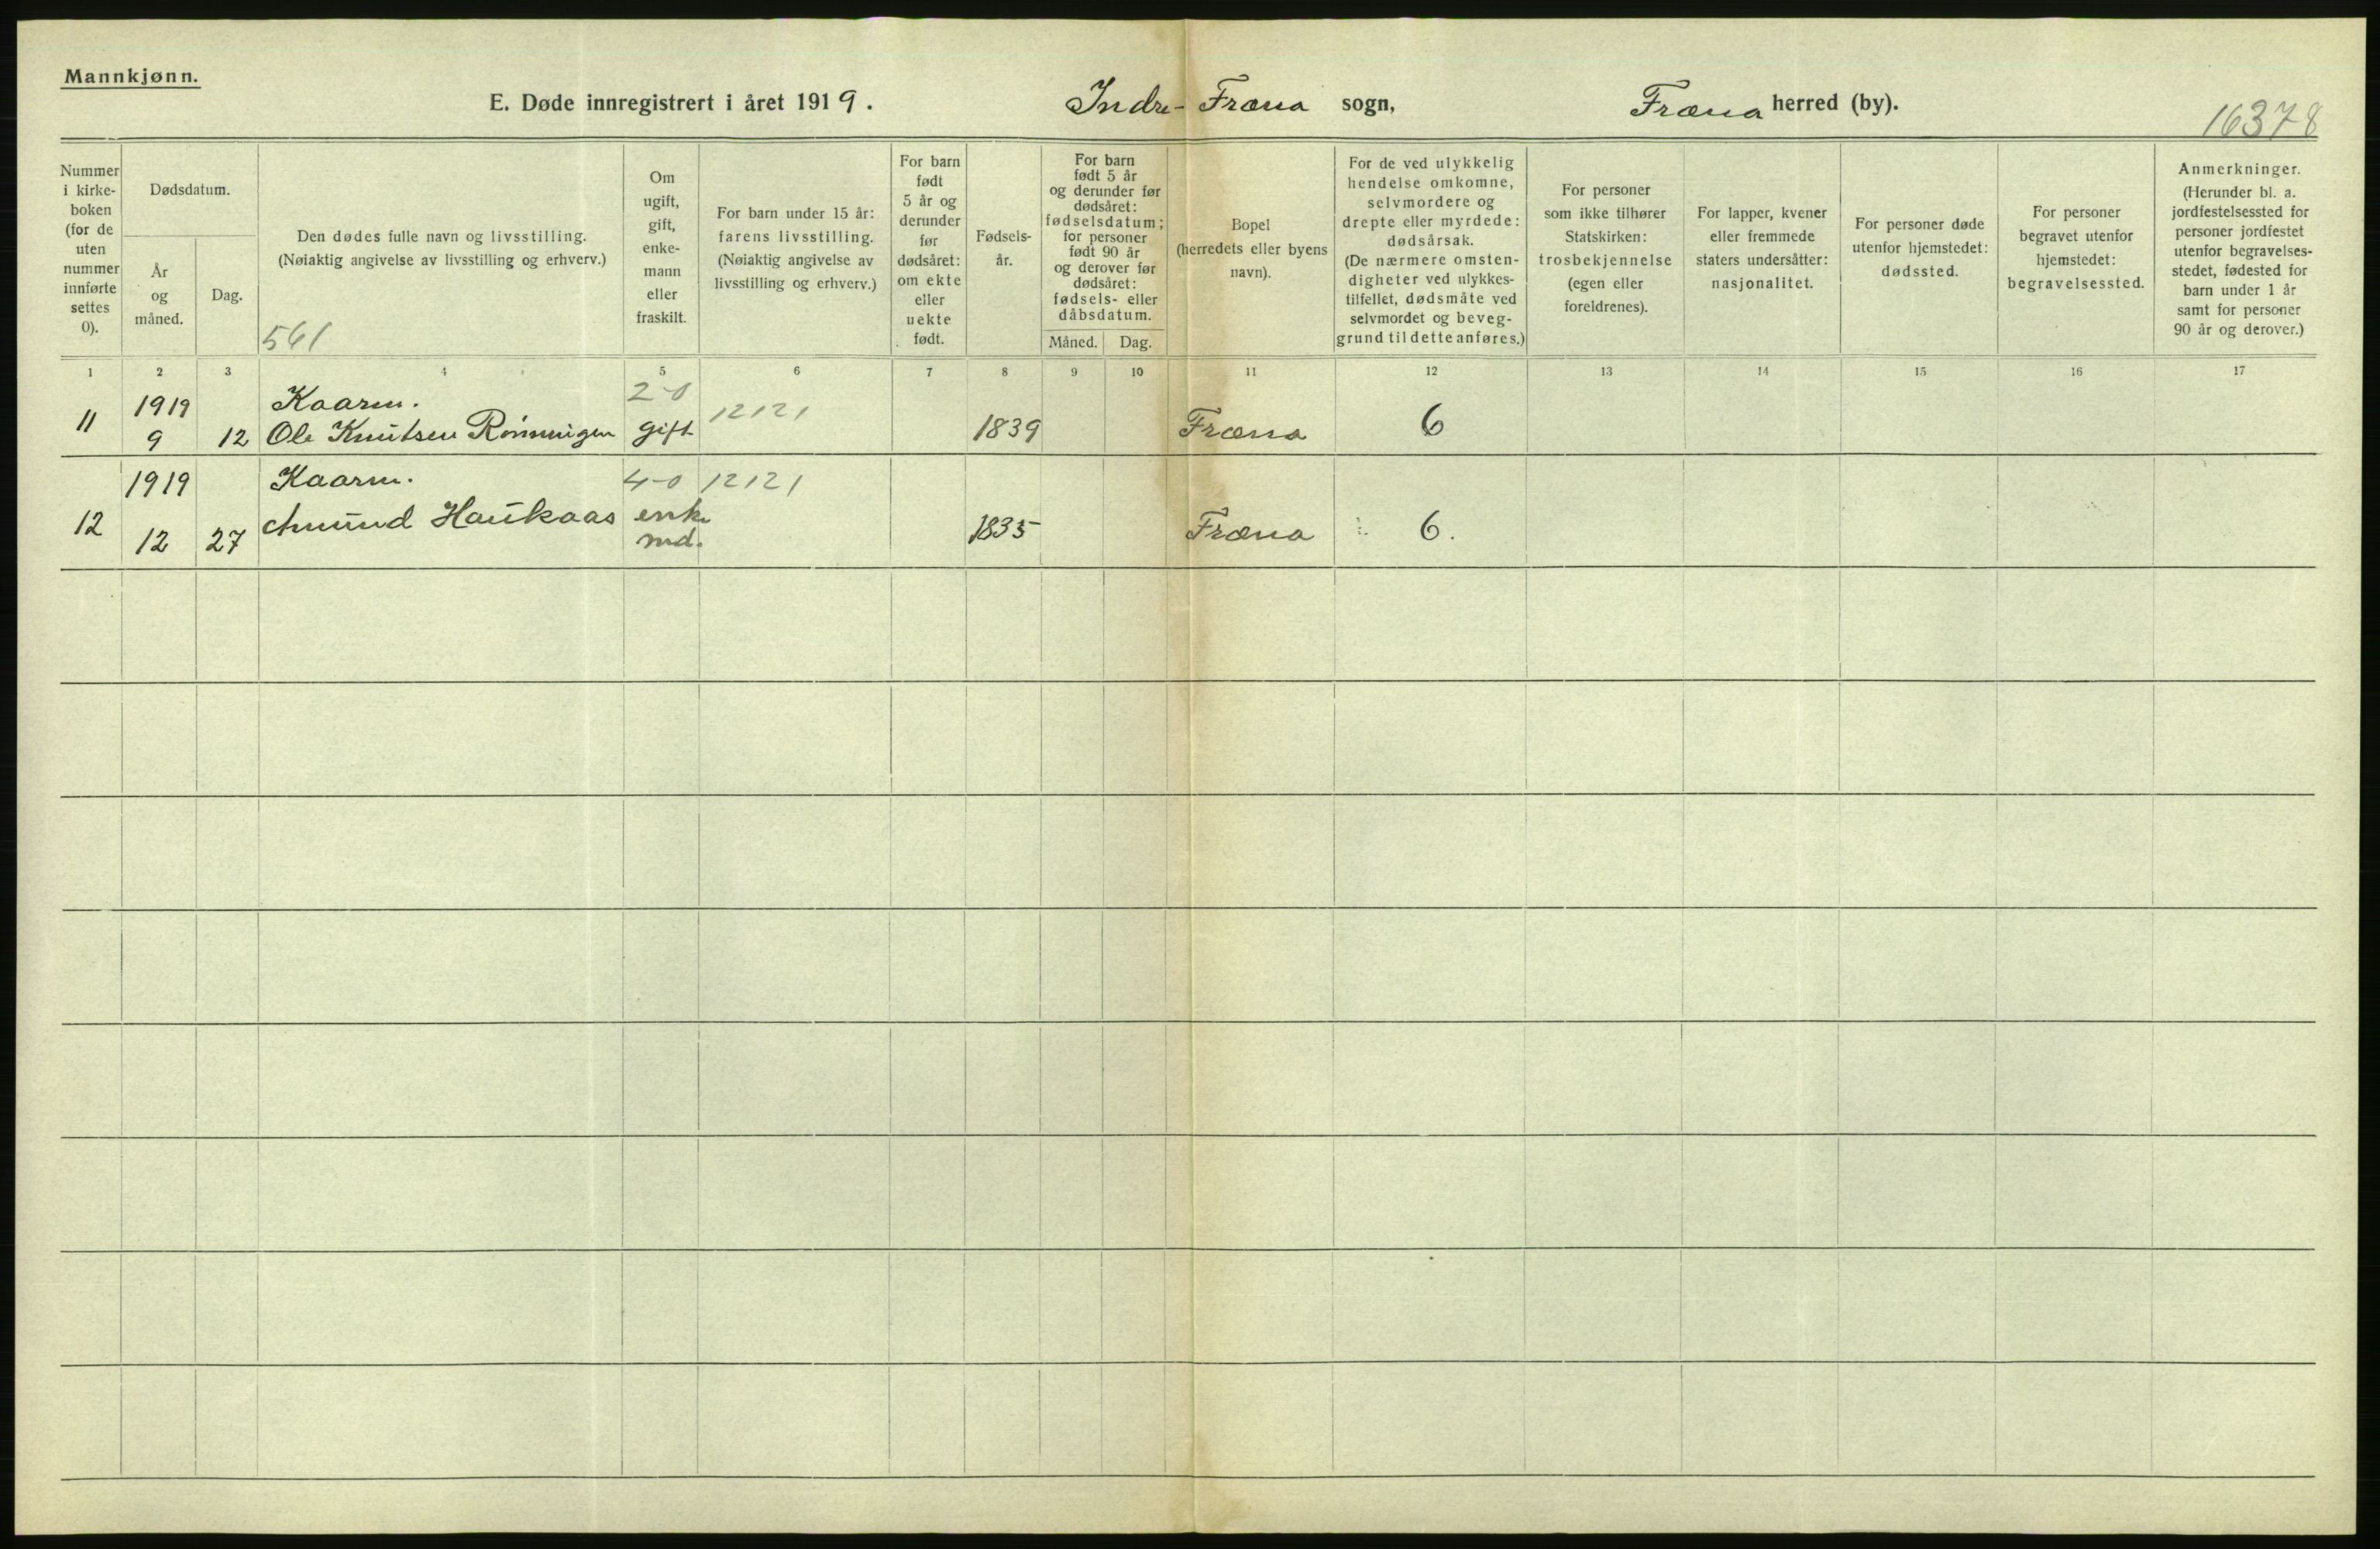 Mannkjønn.
E. Døde innregistrert i året 1919. Indre-Fræna sogn, Fræna herred (by).
16378
Nummer i kirke- boken (for de uten nummer innførte settes 0).
Dødsdatum.
År og måned.
Dag.
Den dødes fulle navn og livsstilling.
(Nøiaktig angivelse av livsstilling og erhverv.)
561
Om ugift, gift, enke- mann eller fraskilt.
For barn under 15 år:
farens livsstilling.
(Nøiaktig angivelse av
livsstilling og erhverv.)
For barn født 5 år og derunder før dødsåret: om ekte eller uekte født.
Fødsels- år.
For barn
født 5 år
og derunder før
dødsåret:
fødselsdatum;
for personer
født 90 år
og derover før
dødsåret:
fødsels- eller
dåbsdatum.
Måned. Dag.
Bopel
(herredets eller byens
navn).
For de ved ulykkelig
hendelse omkomne,
selvmordere og
drepte eller myrdede:
dødsårsak.
(De nærmere omsten-
digheter ved ulykkes-
tilfellet, dødsmåte ved
selvmordet og beveg-
grund til dette anføres.)
For personer
som ikke tilhører
Statskirken:
trosbekjennelse
(egen eller
foreldrenes).
For lapper, kvener
eller fremmede
staters undersåtter:
nasjonalitet.
For personer døde
utenfor hjemstedet:
dødssted.
For personer
begravet utenfor
hjemstedet:
begravelsessted.
Anmerkninger.
(Herunder bl. a.
jordfestelsessted for
personer jordfestet
utenfor begravelses-
stedet, fødested for
barn under 1 år
samt for personer
90 år og derover.)
1 2 3 4 5 6 7 8 9 10 11 12 13 14 15 16 17
1919 Kaarm. 2-0 12121
11 9 12 Ole Knutsen Rønningen gift 1839 Fræna 6
1919 Kaarm. 4-0 12121
12 12 27 Amund Haukaas enke 1835 Fræna 6.
md.